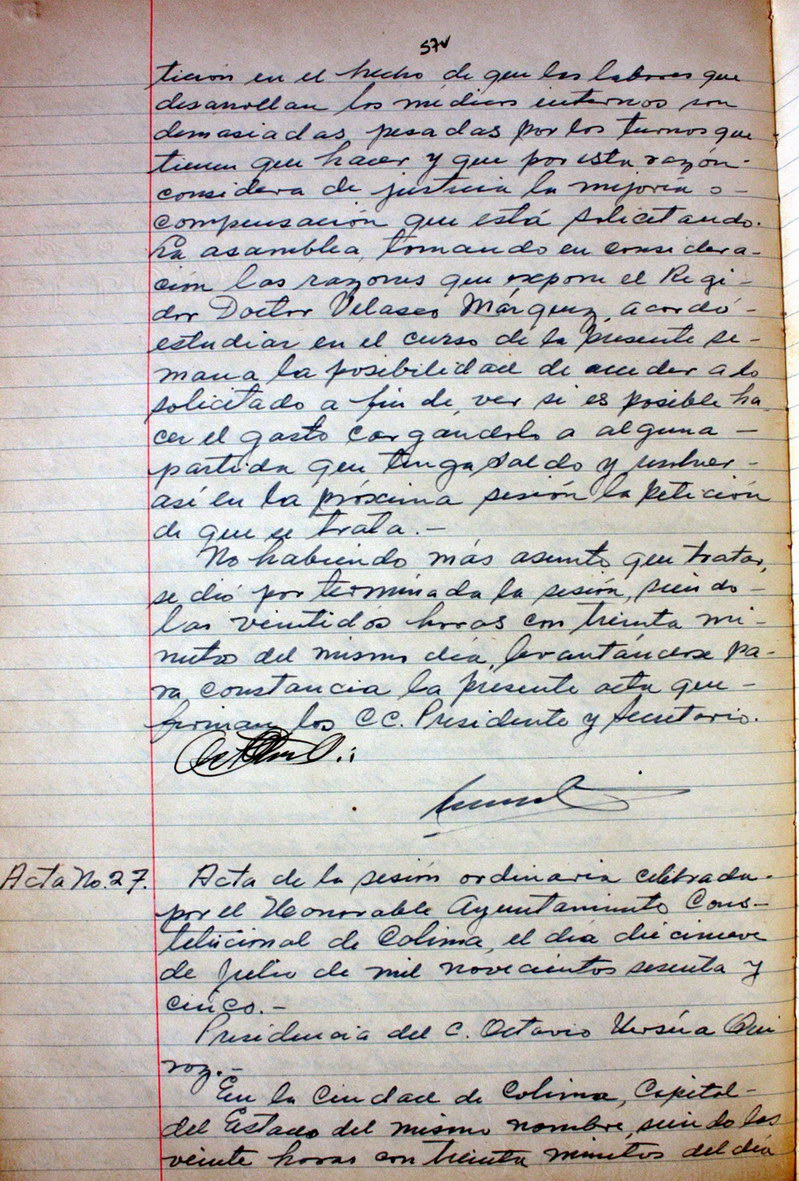 57v
tición en el hecho de que las labores que
desarrollan los médicos internos son
demasiadas pesadas por los turnos que
tienen que hacer y que por esta razón-
considera de justicia la mejoría o-
compensación que está solicitando.
La asamblea, tomando en considera-
ción las razones que expone el Regi-
dor Doctor Velasco Márquez, acordó-
estudiar en el curso de la presente se-
mana la posibilidad de acceder a lo
solicitado a fin de ver si es posible ha-
cer el gasto cargándolo a alguna-
partida que tenga saldo y resolver-
así en la próxima sesión la petición
de que se trata.-
No habiendo más asunto que tratar,
se dió por terminada la sesión, siendo-
las veintidós horas con treinta mi-
nutos del mismo día, levantándose pa-
ra constancia la presente acta que-
firman los CC. Presidente y Secretario.
Acta No. 27.
Acta de la sesión ordinaria celebrada-
por el Honorable Ayuntamiento Cons-
titucional de Colima, el día diecinueve
de julio de mil novecientos sesenta y
cinco.-
Presidencia del C. Octavio Ursúa Qui
roz.-
En la Ciudad de Colima, Capital-
del Estado del mismo nombre, siendo las
veinte horas con treinta minutos del día